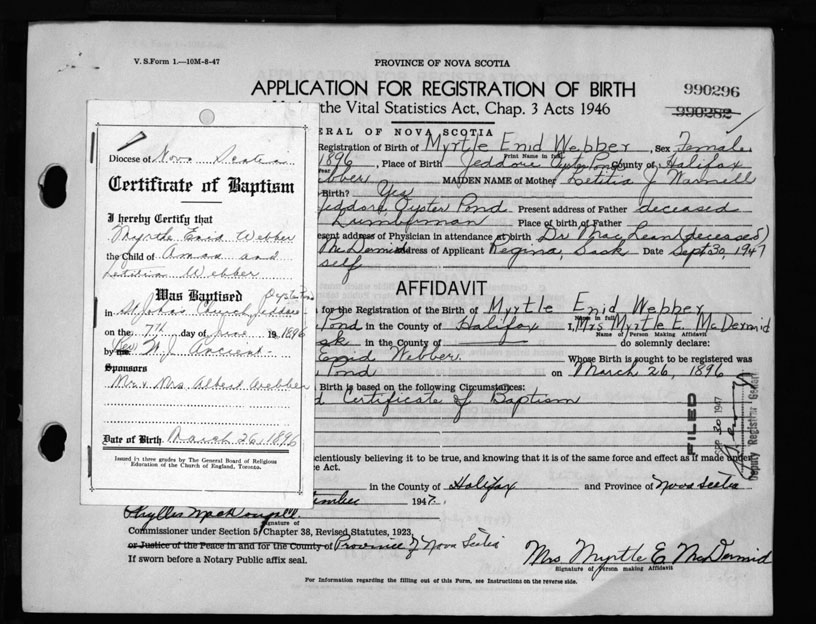 V. S. Form 1.—10M-8-47
PROVINCE OF NOVA SCOTIA
APPLICATION FOR REGISTRATION OF BIRTH
990296
990282
the Vital Statistics Act, Chap. 3 Acts 1946
ERAL OF NOVA SCOTIA
Registration of Birth of Myrtle Enid Webber, Sex Female,
Print Name in full
1896, Place of Birth Jeddore Oyster Pond County of Halifax
Year
ebber MAIDEN NAME of Mother Letitia J Warnell
Birth? Yes
Jeddore Oyster Pond Present address of Father deceased
Lumberman Place of birth of Father
esent address of Physician in attendance at birth Dr MacLean (deceased)
McDermid address of Applicant Regina, Sask Date Sept 30, 1947
self
AFFIDAVIT
for the Registration of the Birth of Myrtle Enid Webber
Name in full
Pond in the County of Halifax I, Mrs Myrtle E. McDermid
Name of Person Making Affidavit
sk in the County of do solemnly declare:
Enid Webber. Whose Birth is sought to be registered was
Pond on March 26, 1896
Birth is based on the following Circumstances:
d Certificate of Baptism
FILED
30 1947
Deputy Registrar General
cientiously believing it to be true, and knowing that it is of the same force and effect as if made under
ce Act.
in the County of Halifax and Province of Nova Scotia
tember 1947.
Phyllis MacDougall.
Signature of
Commissioner under Section 5, Chapter 38, Revised Statutes, 1923,
or Justice of the Peace in and for the County of Province of Nova Scotia
If sworn before a Notary Public affix seal.
Mrs Myrtle E McDermid
Signature of Person making Affidavit
For Information regarding the filling out of this Form, see Instructions on the reverse side.
Diocese of Nova Scotia
Certificate of Baptism
I hereby Certify that
Myrtle Enid Webber
the Child of Amos and
Letitia Webber
Was Baptised
Oyster Pond
in St Johns Church Jeddore
on the 7th day of June 1896
by Rev W. J. Ancient
Sponsors
Mr & Mrs Albert Webber
Date of Birth March 26, 1896
Issued in three grades by The General Board of Religious
Education of the Church of England, Toronto.